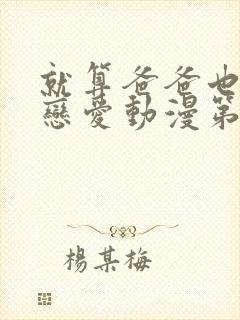 就算爸爸也
戀愛動漫第
楊某梅